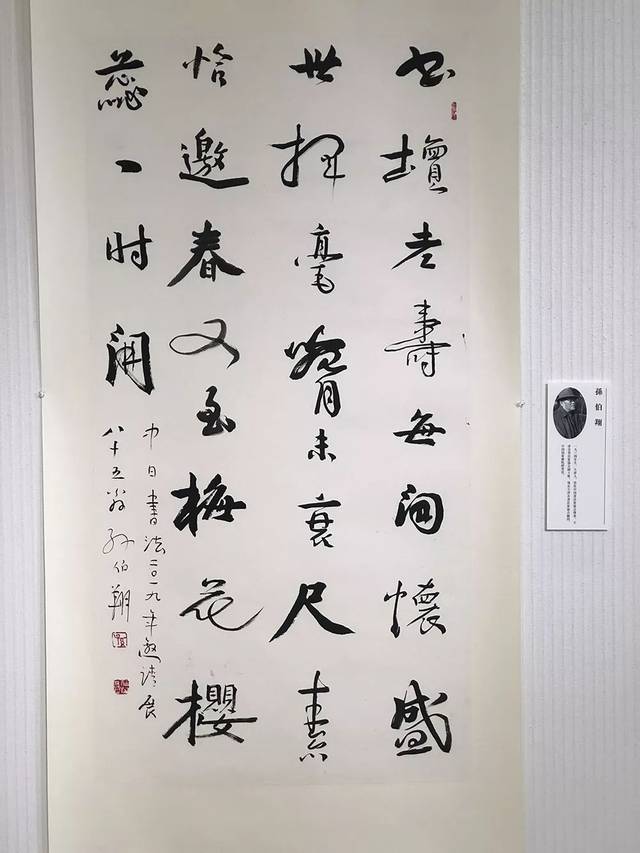 书壇老壽每開懷盛
世揮毫臂未衰尺素
恰邀春又至梅花櫻
蕊一时開
中日書法二〇一九年邀请展
八十五翁孙伯翔
孫伯翔